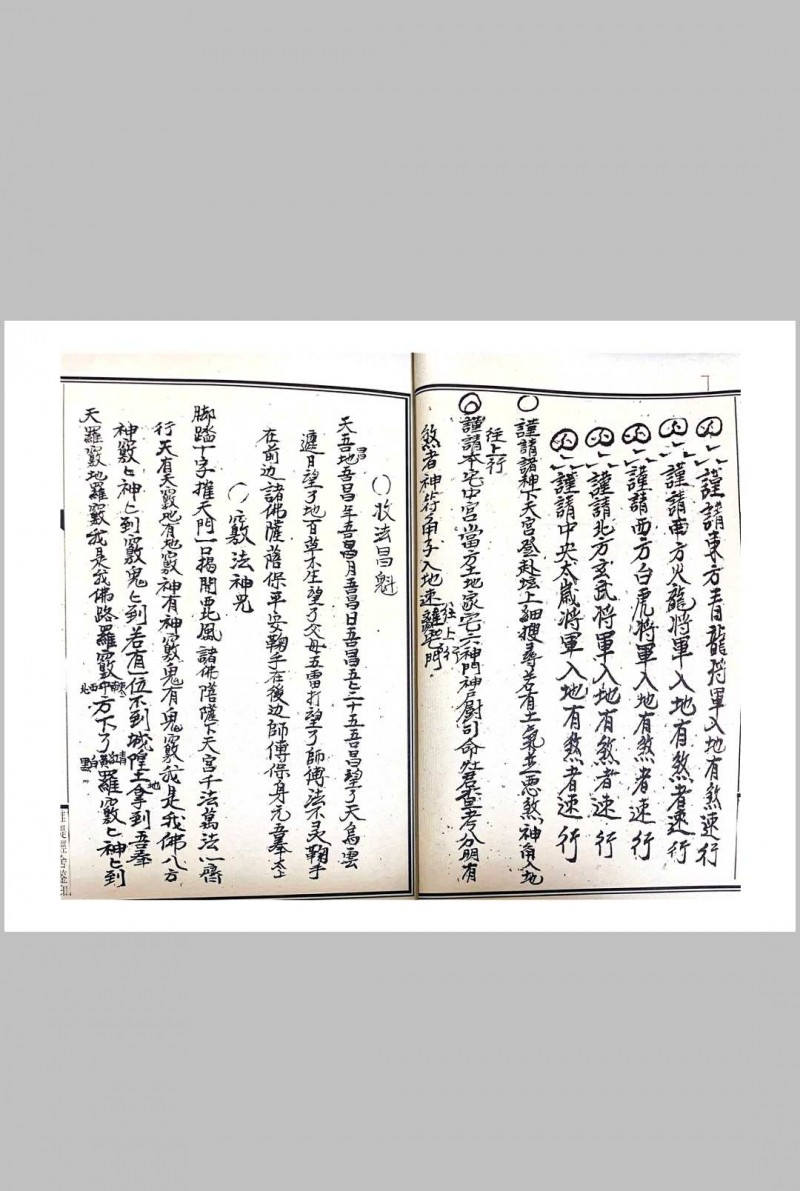 謹請東方青龍将軍入地有煞速行
謹請南方火龍將軍入地有煞者速行
謹請西方白虎將軍入地有煞者速行
謹請北方玄武將軍入地有煞者速行
謹請中央太歲將軍入地有煞者速行
○謹請諸神下天宮登赴坛上細搜尋若有土氣並悪煞神角入地
往上行
謹請本宅中宮當方土地家宅六神門神户尉司命灶君查考分明有
煞者神符甲子入地速離宅門
往上行
○收法昌魁
天吾地吾昌年吾昌月吾昌日吾昌五七二十五吾昌望了天烏雲
昌
遮月望了地百草不生望了父母五雷打望了師傅法不灵鞠手
在前边諸佛薩菩保平安鞠手在後边師傅保身元吾奉太上
○竅法神咒
脚踏十字推天門一口揭開毘風諸佛菩薩下天宮千法萬法心齊
行天有天竅地有地竅神有神竅鬼有鬼竅我是我佛八方
神竅匕神匕到竅鬼匕到若有一位不到城隍土地拿到吾奉
天羅竅地羅竅我是我佛路羅竅方下了羅竅匕神匕到